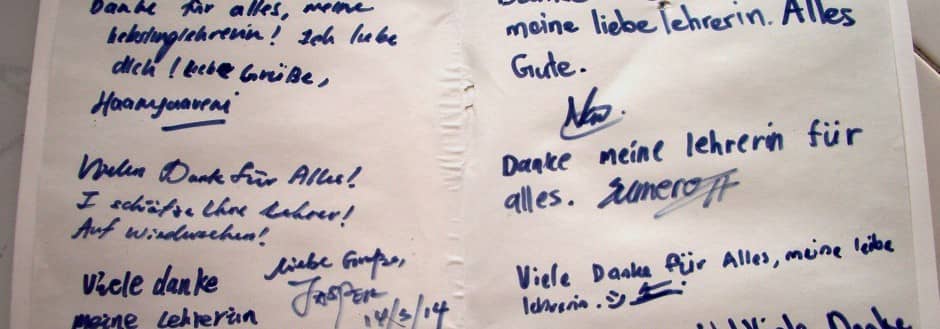 Danke für alles, meine
lieblingslehrerin! Ich liebe
dich! Liebe Grüße,
Vielen Dank für Alles!
I schätze Ihre Lehrer!
Auf Wiedersehen!
Liebe Grüße,
JASPER
14/3/14
Viele danke
meine Lehrerin
meine liebe lehrerin. Alles
Gute.
Danke meine lehrerin für
alles.
Viele Danke für Alles, meine leibe
lehrerin. :)
Viele Danke